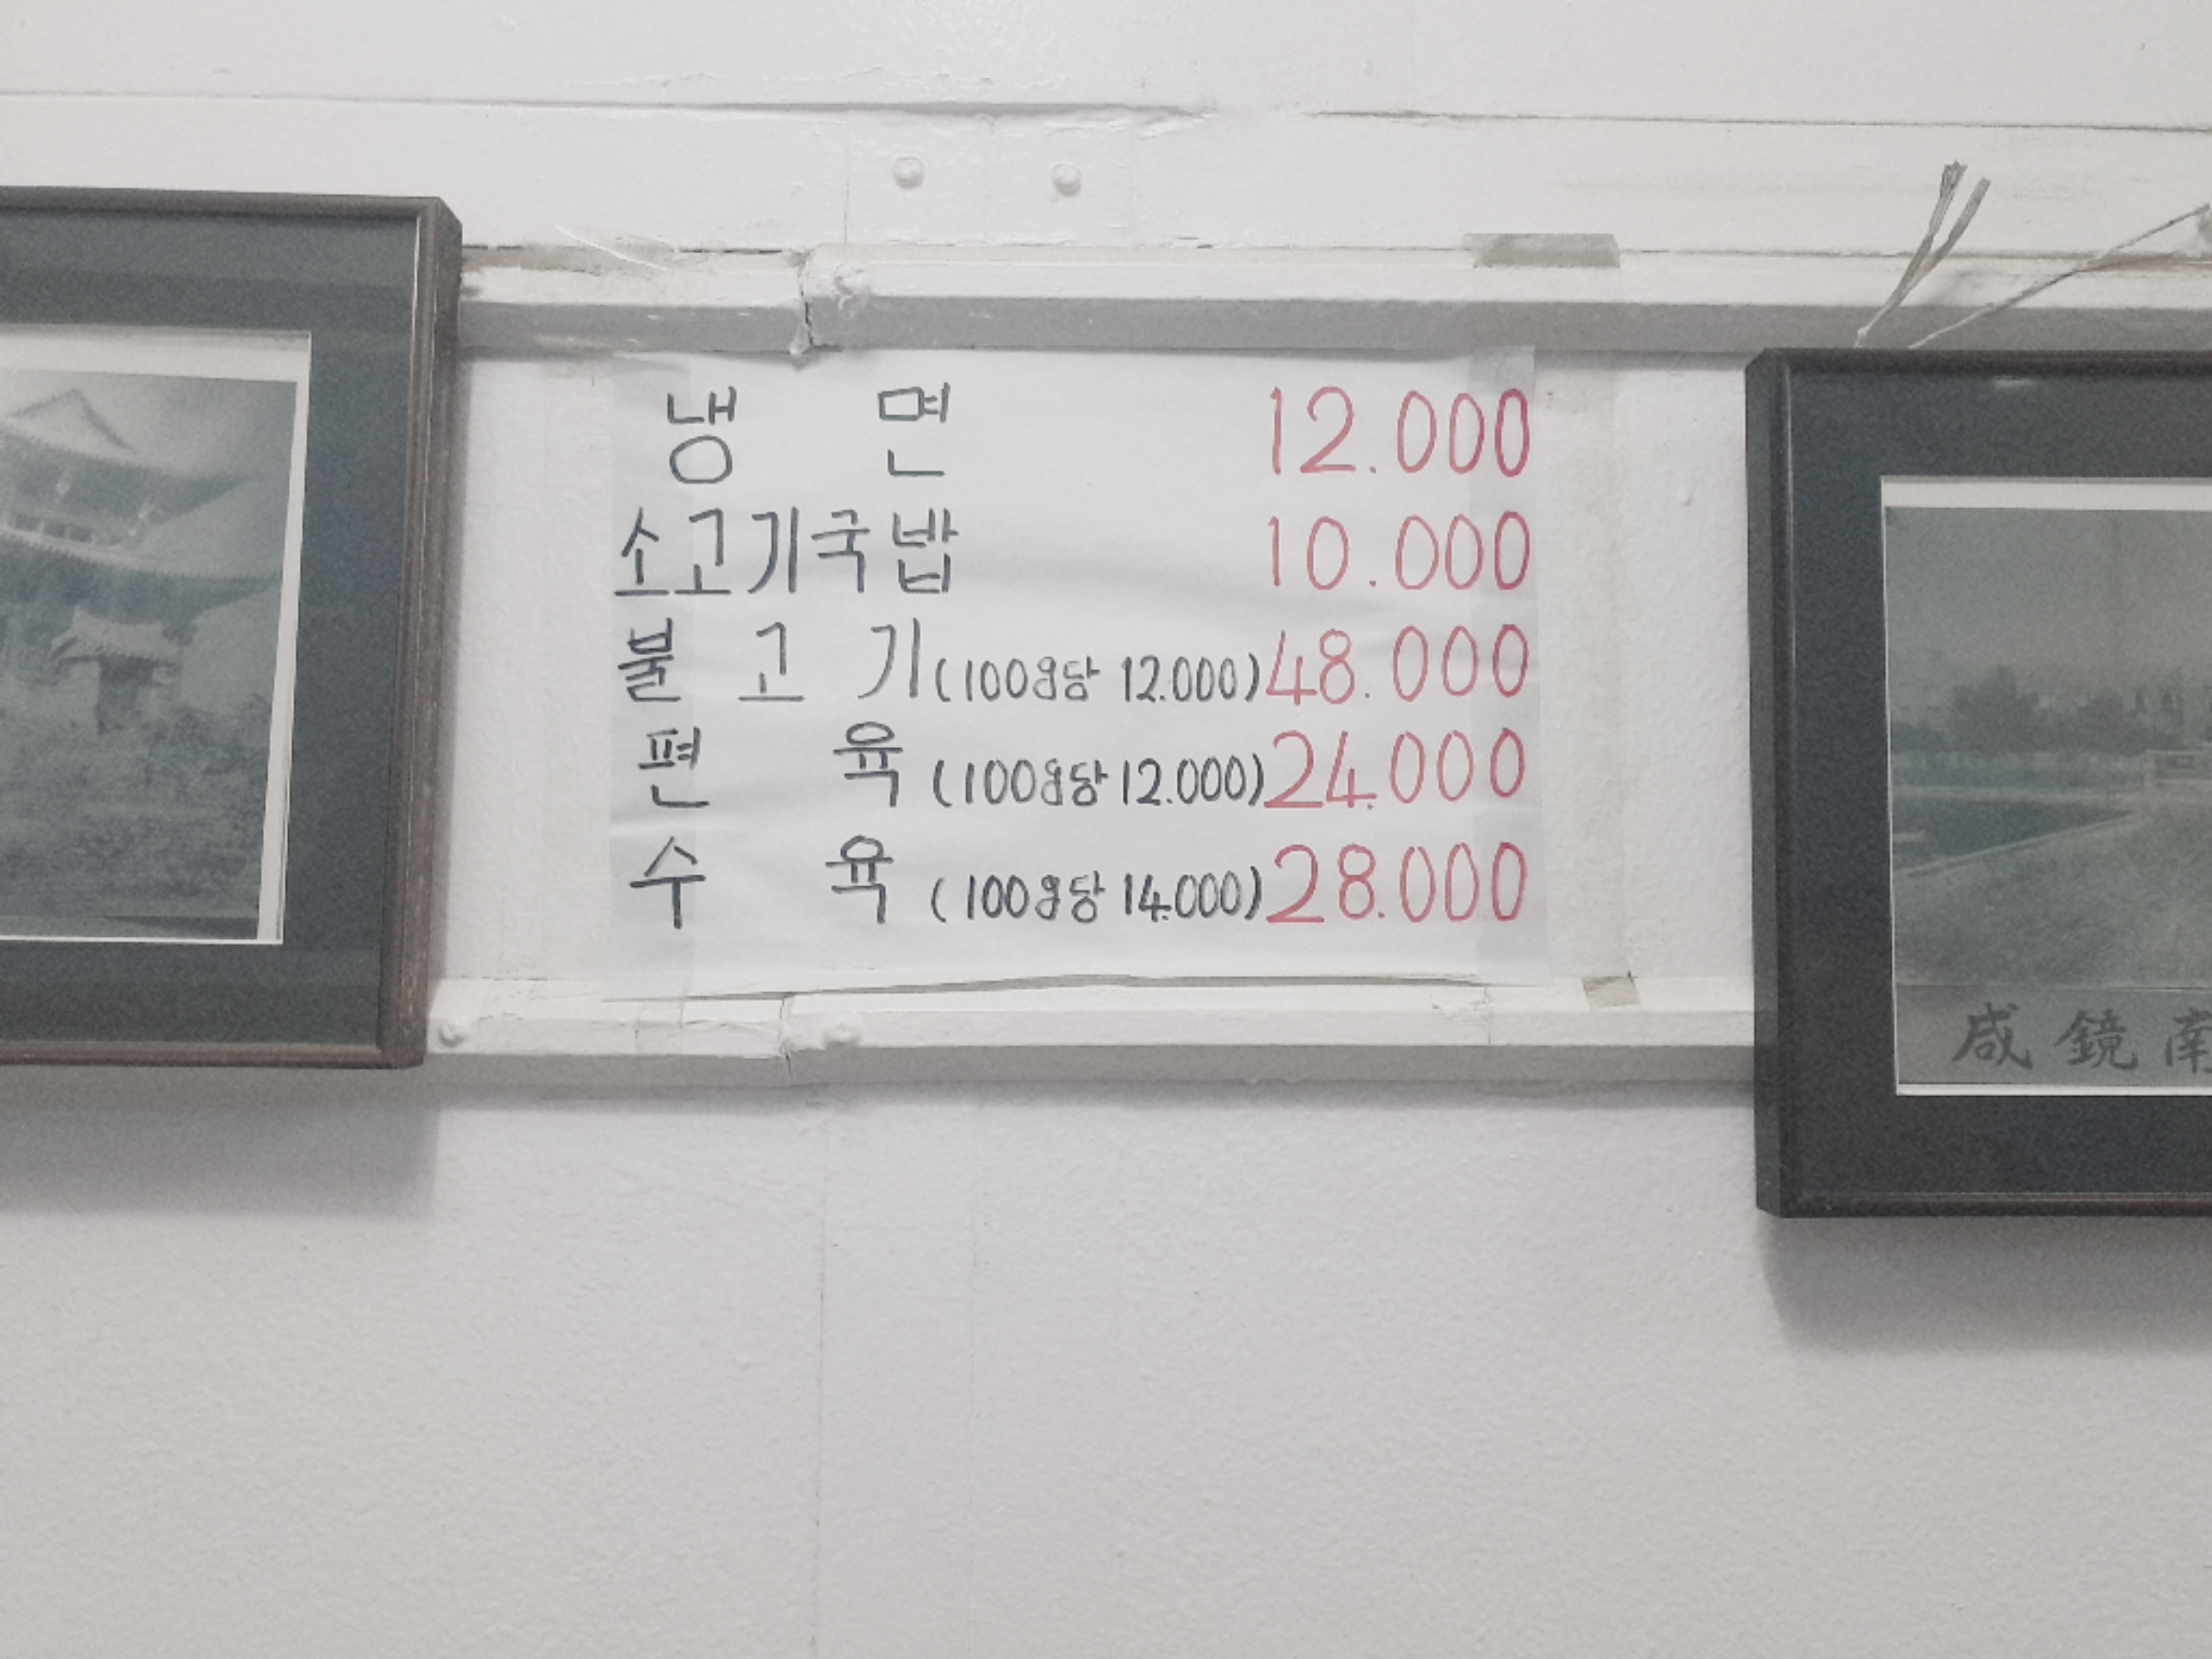 냉 면 12.000
소고기국밥 10.000
불 고 기 (100g당 12.000) 48.000
편 육 (100g당 12.000) 24.000
수 육 (100g당 14.000) 28.000
咸鏡南